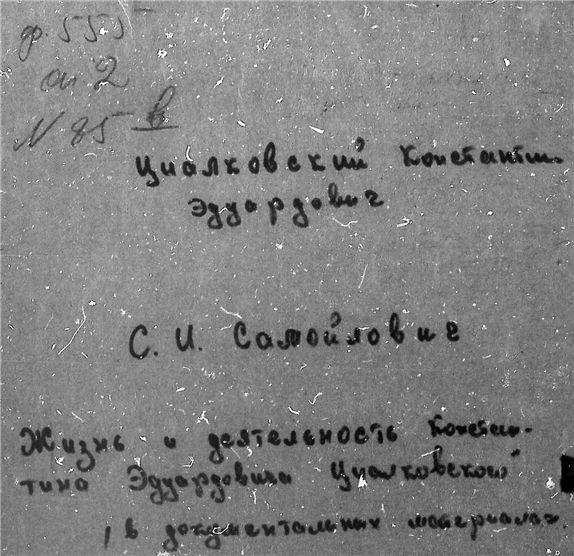 ф. 555
оп 2
N 85 в
Циалковский Констант
Эдуардович
С. И. Самойлович
Жизнь и деятельность Констан-
тина Эдуардовича Циалковского
, в документальных материалах.